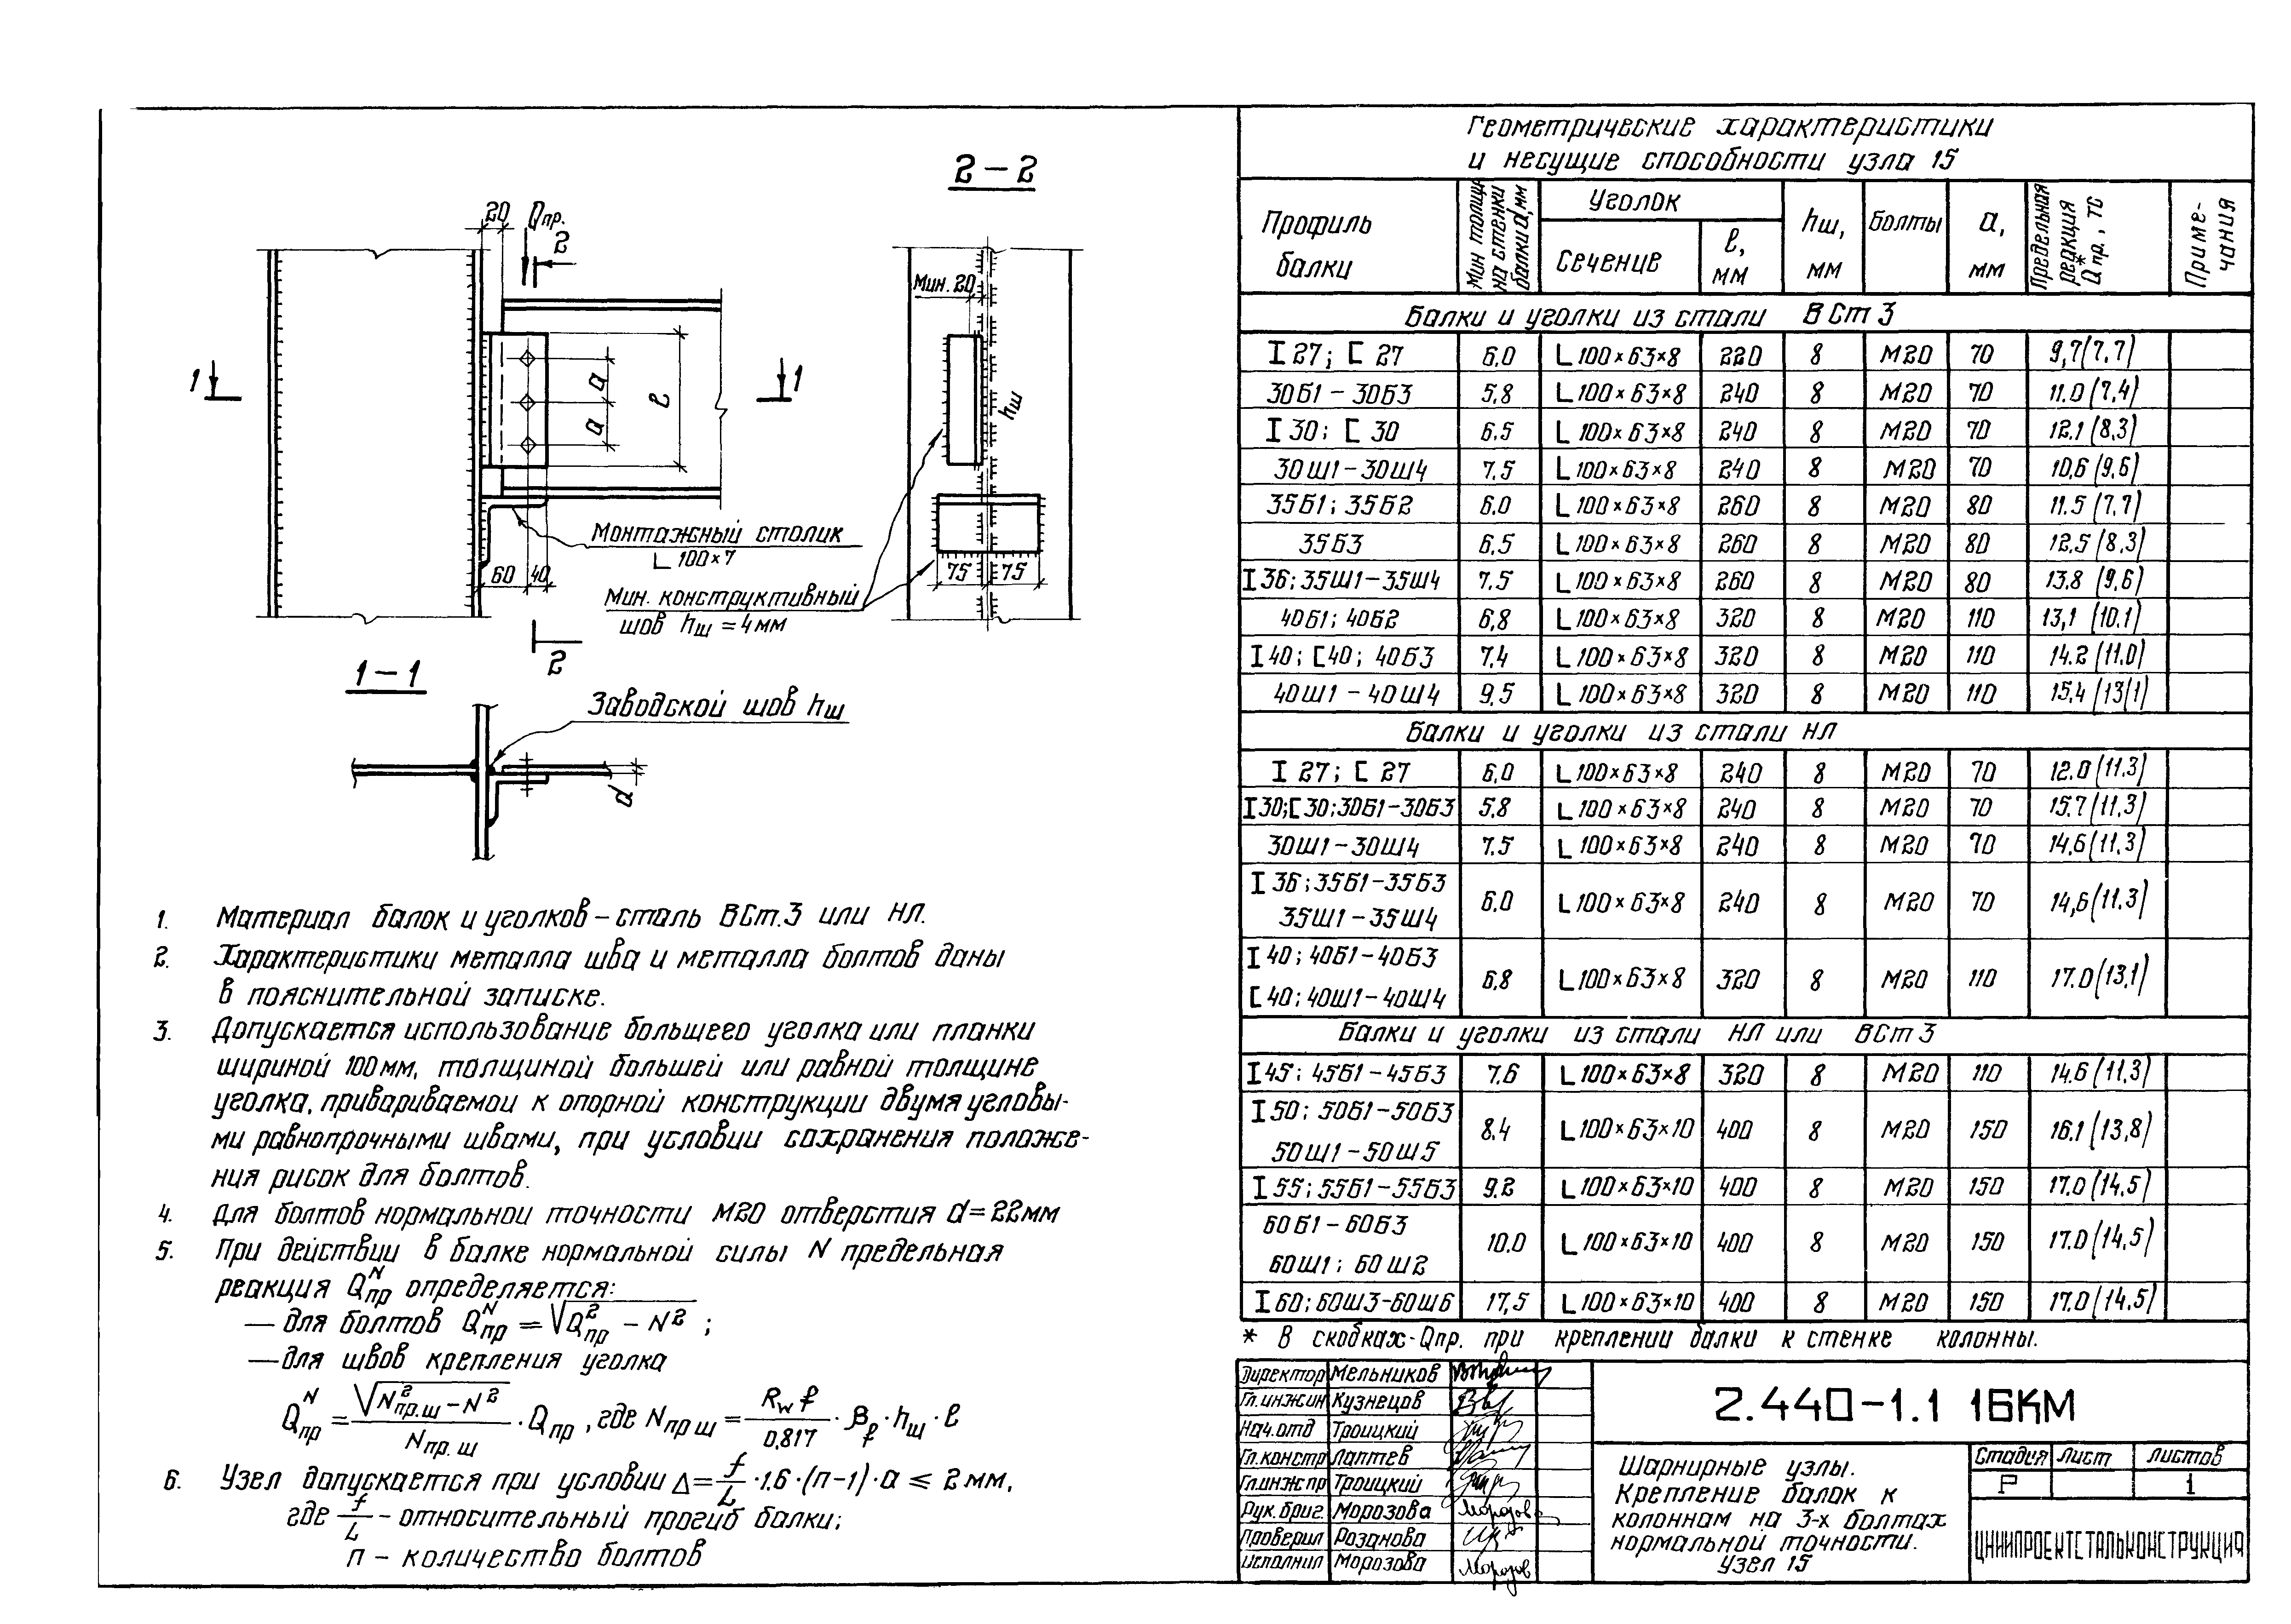 2-2
20 Qпр.
2
Мин. 20
1
1
а
а
l
hш
Монтажный столик
L 100×7
60 40
75 75
Мин. конструктивный
шов hш = 4мм
2
1-1
Заводской шов hш
d
1. Материал балок и уголков – сталь ВСт.3 или НЛ.
2. Характеристики металла шва и металла болтов даны
в пояснительной записке.
3. Допускается использование большего уголка или планки
шириной 100мм, толщиной большей или равной толщине
уголка, привариваемой к опорной конструкции двумя угловы-
ми равнопрочными швами, при условии сохранения положе-
ния рисок для болтов.
4. Для болтов нормальной точности М20 отверстия d=22мм
5. При действии в балке нормальной силы N предельная
реакция Qᴺпр определяется:
— для болтов Qᴺпр = √(Q²пр – N²) ;
— для швов крепления уголка
Qᴺпр = √(N²пр.ш – N²) / Nпр.ш · Qпр , где Nпр ш = Rw f / 0,817 · βf · hш · l
6. Узел допускается при условии Δ = f/L · 1.6 · (п-1) · а ≤ 2 мм,
где f/L – относительный прогиб балки;
п – количество болтов
Геометрические характеристики
и несущие способности узла 15
Профиль балки | Мин толщина стенки балки d, мм | Уголок Сечение | l, мм | hш, мм | Болты | а, мм | Предельная реакция Qпр.*, тс | Примечания
Балки и уголки из стали ВСт 3
I 27; [ 27 6,0 L 100×63×8 220 8 М20 70 9,7(7,7)
30Б1 – 30Б3 5,8 L 100×63×8 240 8 М20 70 11.0 (7,4)
I 30; [ 30 6.5 L 100×63×8 240 8 М20 70 12.1 (8,3)
30Ш1 – 30Ш4 7.5 L 100×63×8 240 8 М20 70 10,6 (9,6)
35Б1; 35Б2 6,0 L 100×63×8 260 8 М20 80 11.5 (7,7)
35Б3 6,5 L 100×63×8 260 8 М20 80 12,5 (8,3)
I 36; 35Ш1 – 35Ш4 7,5 L 100×63×8 260 8 М20 80 13.8 (9,6)
40Б1; 40Б2 6,8 L 100×63×8 320 8 М20 110 13,1 (10.1)
I 40; [40; 40Б3 7,4 L 100×63×8 320 8 М20 110 14.2 (11.0)
40Ш1 – 40Ш4 9,5 L 100×63×8 320 8 М20 110 15,4 (13(1)
Балки и уголки из стали НЛ
I 27; [ 27 6,0 L 100×63×8 240 8 М20 70 12.0 (11.3)
I30;[30;30Б1–30Б3 5,8 L 100×63×8 240 8 М20 70 15.7 (11,3)
30Ш1 – 30Ш4 7.5 L 100×63×8 240 8 М20 70 14,6 (11.3)
I 36; 35Б1 – 35Б3
35Ш1 – 35Ш4 6.0 L 100×63×8 240 8 М20 70 14,6 (11.3)
I 40; 40Б1 – 40Б3
[ 40; 40Ш1 – 40Ш4 6,8 L 100×63×8 320 8 М20 110 17.0 (13,1)
Балки и уголки из стали НЛ или ВСт 3
I 45; 45Б1 – 45Б3 7,6 L 100×63×8 320 8 М20 110 14.6 (11,3)
I 50; 50Б1 – 50Б3
50Ш1 – 50Ш5 8.4 L 100×63×10 400 8 М20 150 16.1 (13,8)
I 55; 55Б1 – 55Б3 9.2 L 100×63×10 400 8 М20 150 17.0 (14,5)
60Б1 – 60Б3
60Ш1; 60Ш2 10.0 L 100×63×10 400 8 М20 150 17.0 (14,5)
I 60; 60Ш3 – 60Ш6 17,5 L 100×63×10 400 8 М20 150 17.0 (14,5)
* В скобках - Qпр. при креплении балки к стенке колонны.
Директор Мельников
Гл.инж.ин Кузнецов
Нач.отд Троицкий
Гл.констр Лаптев
Гл.инж пр Троицкий
Рук. бриг. Морозова
Проверил Розанова
Исполнил Морозова
2.440-1.1 16КМ
Шарнирные узлы.
Крепление балок к
колоннам на 3-х болтах
нормальной точности.
Узел 15
Стадия Лист Листов
Р 1
ЦНИИПРОЕКТСТАЛЬКОНСТРУКЦИЯ